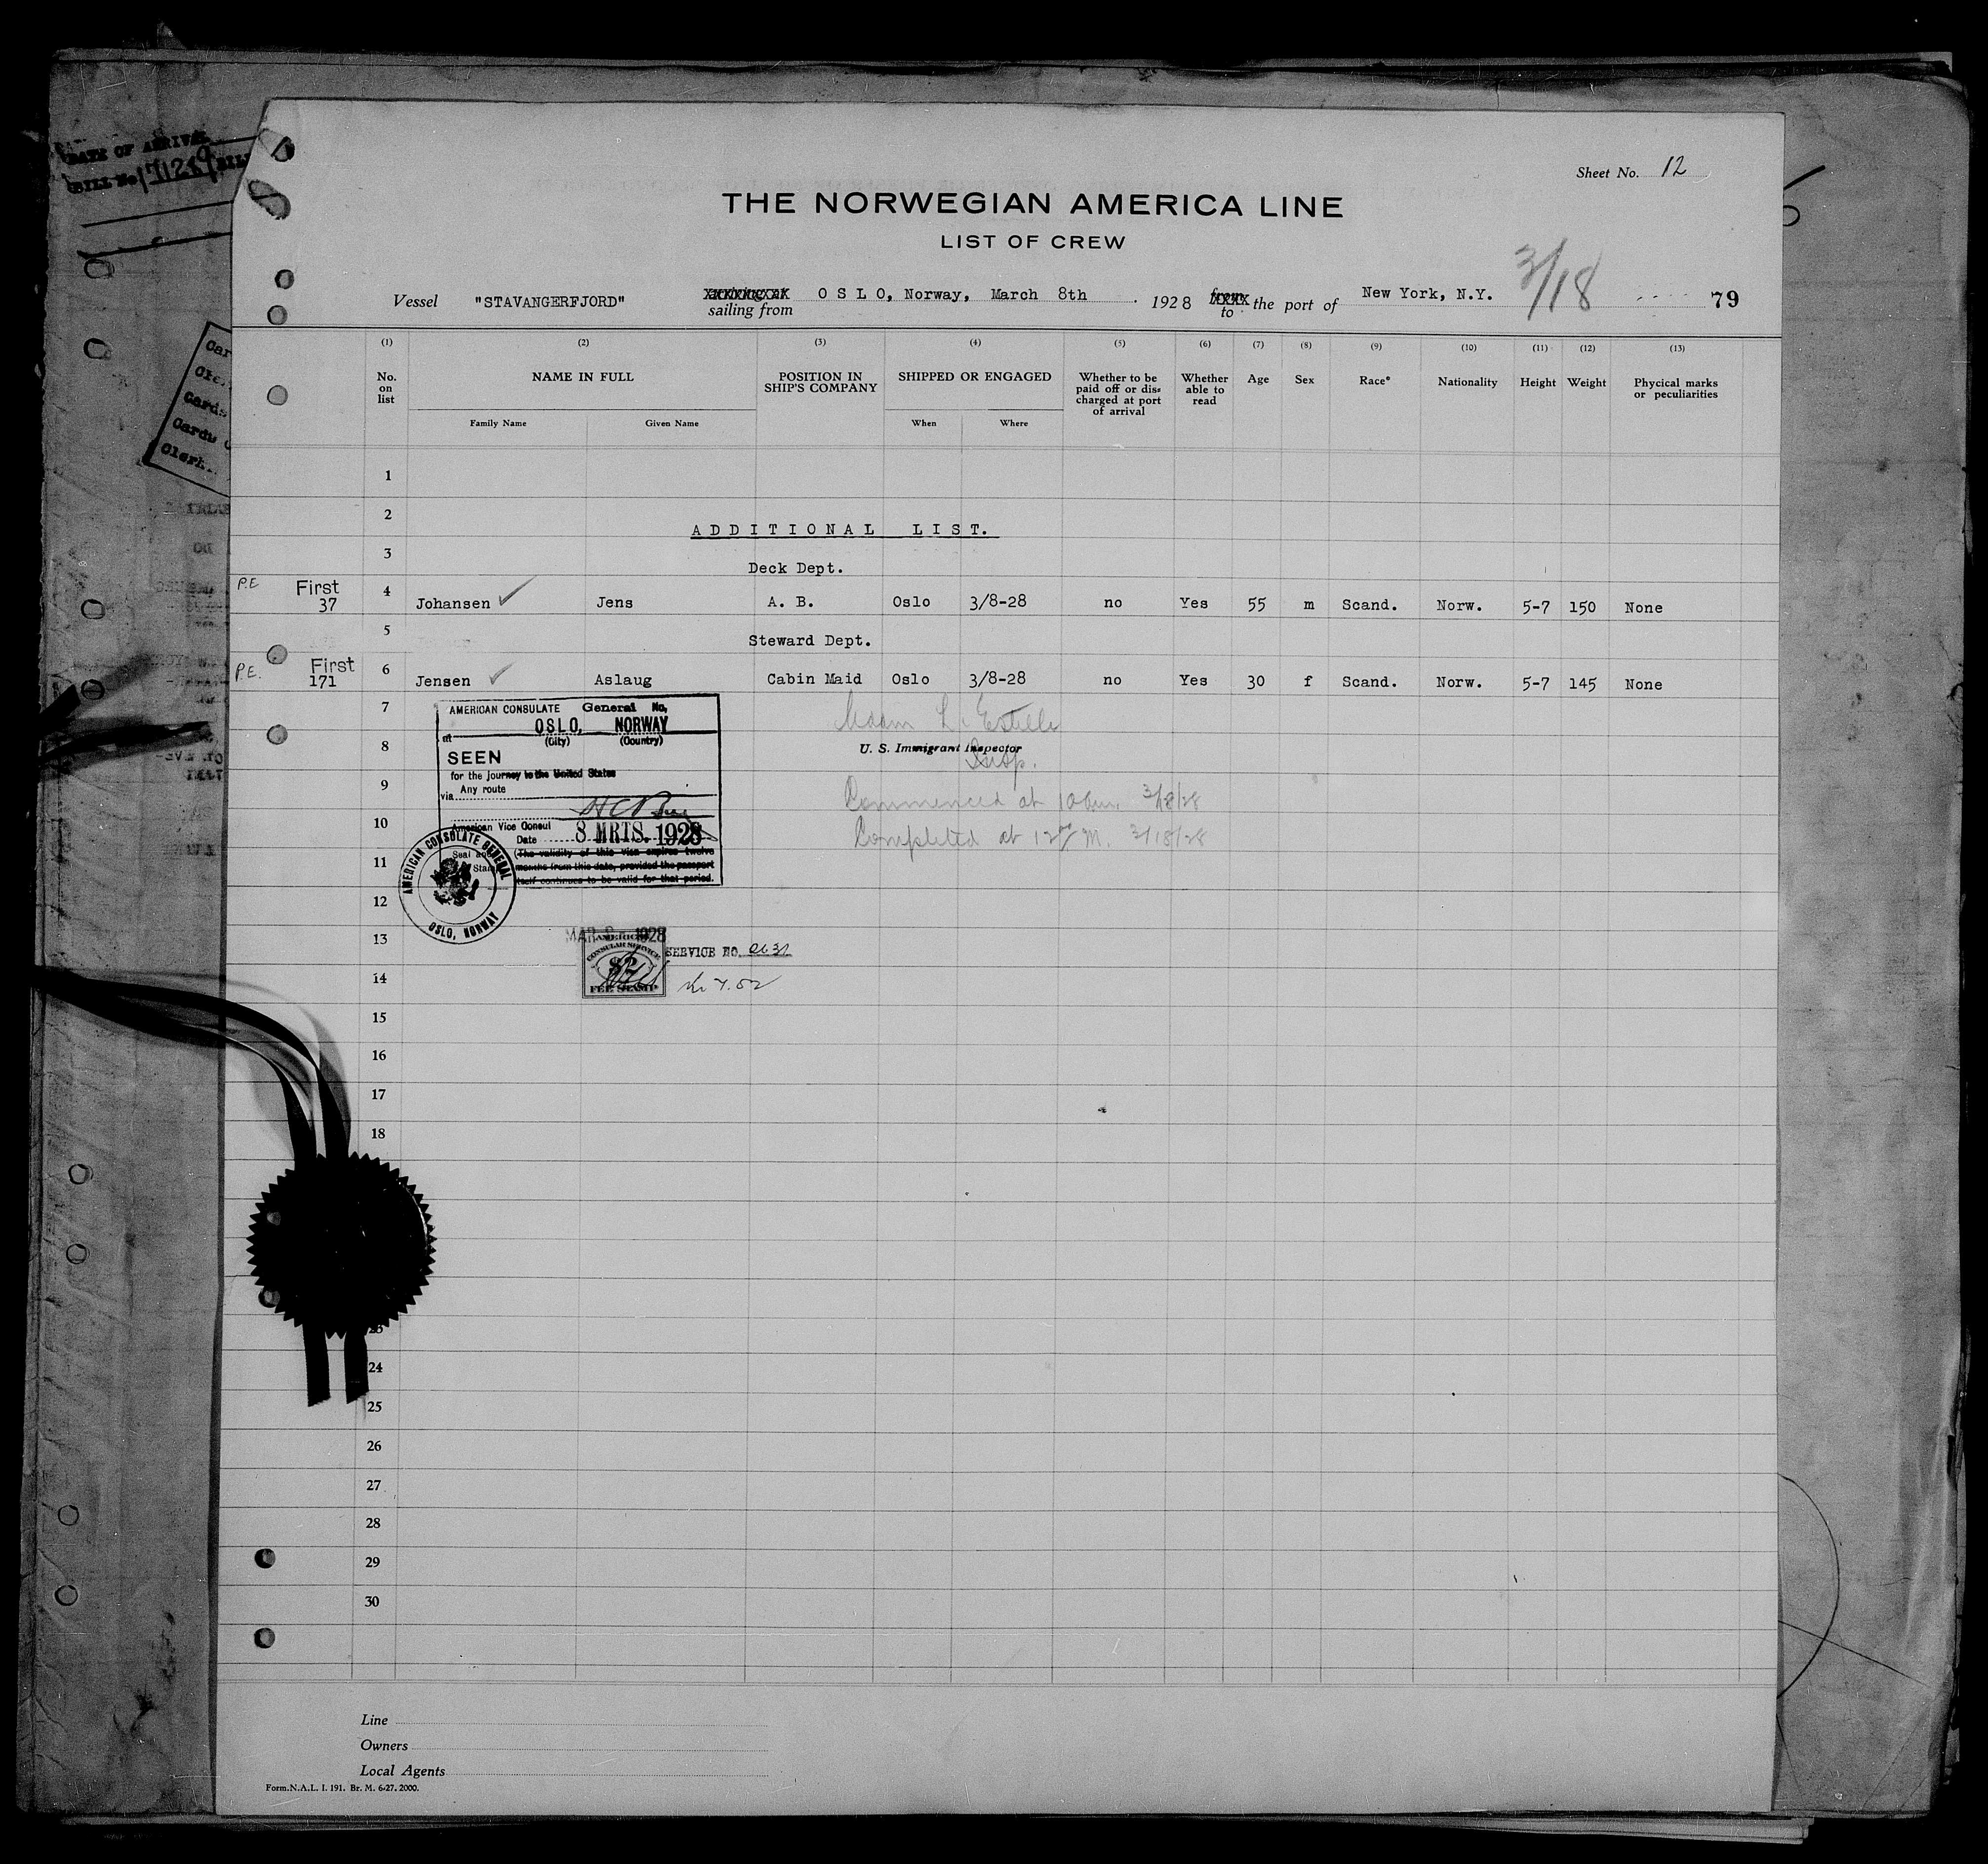 DATE OF ARRIVAL
BILL No. 71249
Sheet No. 12
THE NORWEGIAN AMERICA LINE
LIST OF CREW
3/18
Vessel "STAVANGERFJORD" sailing from O S L O, Norway, March 8th 1928 to the port of New York, N.Y. 79
(1) (2) (3) (4) (5) (6) (7) (8) (9) (10) (11) (12) (13)
No. on list NAME IN FULL POSITION IN SHIP'S COMPANY SHIPPED OR ENGAGED Whether to be paid off or dis-charged at port of arrival Whether able to read Age Sex Race* Nationality Height Weight Phycical marks or peculiarities
Family Name Given Name When Where
1
2
ADDITIONAL LIST.
3
Deck Dept.
P.E First 37 4 Johansen Jens A. B. Oslo 3/8-28 no Yes 55 m Scand. Norw. 5-7 150 None
5
Steward Dept.
P.E. First 171 6 Jensen Aslaug Cabin Maid Oslo 3/8-28 no Yes 30 f Scand. Norw. 5-7 145 None
7
AMERICAN CONSULATE General No,
at OSLO, NORWAY
(City) (Country)
8
SEEN
U. S. Immigrant Inspector
Insp.
for the journey to the United States
9
via Any route
Commenced at 10 am. 3/18/28
10
American Vice Consul
Date 8 MRTS. 1928
Completed at 12 M. 3/18/28
Seal and Stamp
(The validity of this visa expires twelve
11
months from this date, provided the passport
itself continues to be valid for that period.
AMERICAN CONSULATE GENERAL
OSLO, NORWAY
12
13
MAR 8 1928
AMERICAN
CONSULAR SERVICE
$2
FEE STAMP
SERVICE NO.
14
Kr 7.52
15
16
17
18
23
24
25
26
27
28
29
30
Line
Owners
Local Agents
Form.N.A.L. I. 191. Br. M. 6-27. 2000.